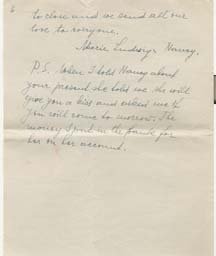 to close and we send all our
love to everyone.
Marie Ludwig Nancy.
P.S. When I told Nancy about
your present she told me she will
give you a kiss and asked me if
you will come to morrow. The
money I put in the bank for
her on her account.